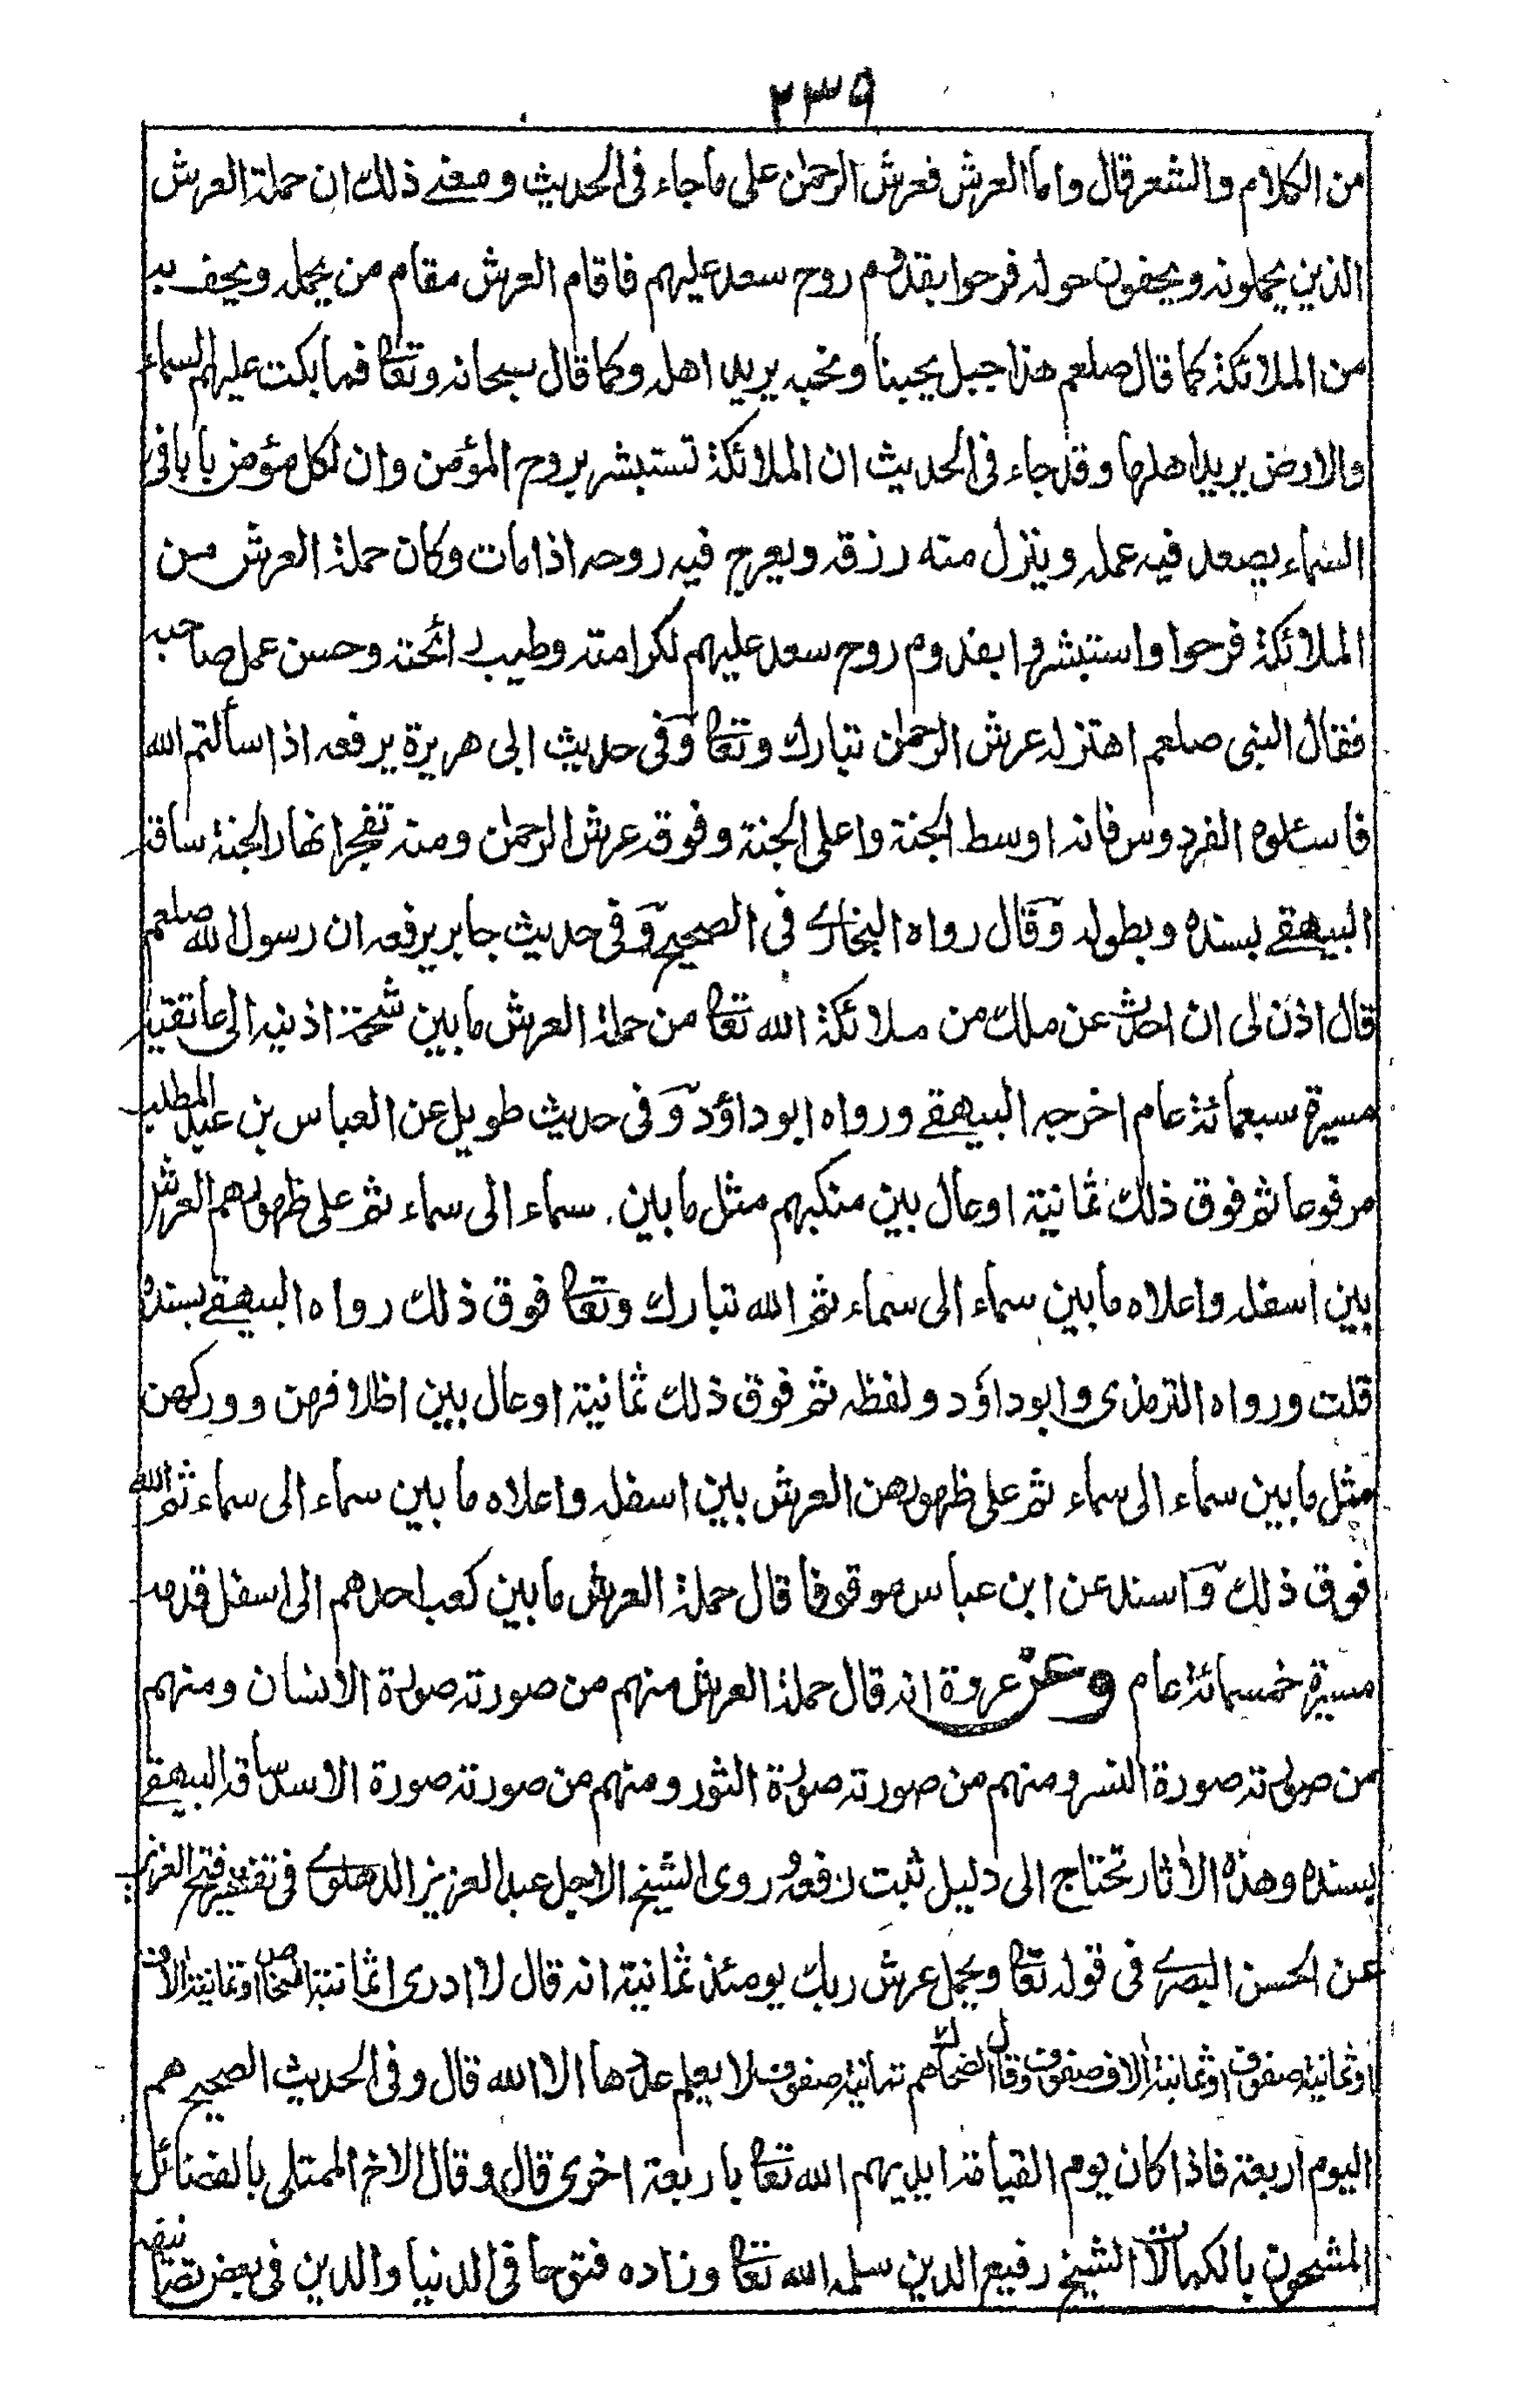 ٢٣٩
من الكلام والشعر قال واما العرش فعرش الرحمٰن على ما جاء فى الحديث ومعنے ذلك ان حملة العرش
الذين يحملونه ويحفون حوله فرحوا بقدوم روح سعد عليهم فاقام العرش مقام من يحمله ويحف به
من الملائكة كما قال صلعم هذا جبل يحبنا ونحبه يريد اهله وكما قال سبحانه وتعا فما بكت عليهم السماء
والارض يريد اهلها وقد جاء فى الحديث ان الملائكة تستبشر بروح المؤمن وان لكل مؤمن بابا فى
السماء يصعد فيه عمله وينزل منه رزقه ويعرج فيه روحه اذا مات وكان حملة العرش من
الملائكة فرحوا واستبشروا بقدوم روح سعد عليهم لكرامته وطيب رائحته وحسن عمل صاحبه
فقال النبى صلعم اهتز له عرش الرحمٰن تبارك وتعا وفى حديث ابى هريرة يرفعه اذا سألتم الله
فاسئلوه الفردوس فانه اوسط الجنة واعلى الجنة وفوقه عرش الرحمٰن ومنه تفجر انهار الجنة ساقه
البيهقے بسنده وبطوله وقال رواه البخارے فى الصحيح وفى حديث جابر يرفعه ان رسول الله صلعم
قال اذن لى ان احدث عن ملك من ملائكة الله تعا من حملة العرش ما بين شحمة اذنيه الى عاتقيه
مسيرة سبعمائة عام اخرجه البيهقے ورواه ابو داؤد وفى حديث طويل عن العباس بن عبد المطلب
مرفوعا ثم فوق ذلك ثمانية اوعال بين منكبهم مثل ما بين سماء الى سماء ثم على ظهورهم العرش
بين اسفله واعلاه ما بين سماء الى سماء ثم الله تبارك وتعا فوق ذلك رواه البيهقے بسنده
قلت ورواه الترمذى وابو داؤد ولفظه ثم فوق ذلك ثمانية اوعال بين اظلافهن ووركهن
مثل ما بين سماء الى سماء ثم على ظهورهن العرش بين اسفله واعلاه ما بين سماء الى سماء ثم الله
فوق ذلك واسند عن ابن عباس موقوفا قال حملة العرش ما بين كعب احدهم الى اسفل قدمه
مسيرة خمسمائة عام وعن عروة انه قال حملة العرش منهم من صورته صورة الانسان ومنهم
من صورته صورة النسر ومنهم من صورته صورة الثور ومنهم من صورته صورة الاسد ساقه البيهقے
بسنده وهذه الأثار تحتاج الى دليل ثبت رفعه وروى الشيخ الاجل عبد العزيز الدهلوے فى تفسير فتح العزيز
عن الحسن البصرے فى قوله تعا ويحمل عرش ربك يومئذ ثمانية انه قال لا ادرى اثمانية اشخاص او ثمانية الاف
او ثمانية صفوف او ثمانية الاف صفوف وقال الضحاك هم ثمانية صفوف لا يعلم عددها الا الله قال وفى الحديث الصحيح هم
اليوم اربعة فاذا كان يوم القيامة ايديهم الله تعا باربعة اخرى قال وقال الاخ الممتلى بالفضائل
المشحون بالكمالات الشيخ رفيع الدين سلمه الله تعا وزاده فتوحا فى الدنيا والدين فى بعض تصانيفه